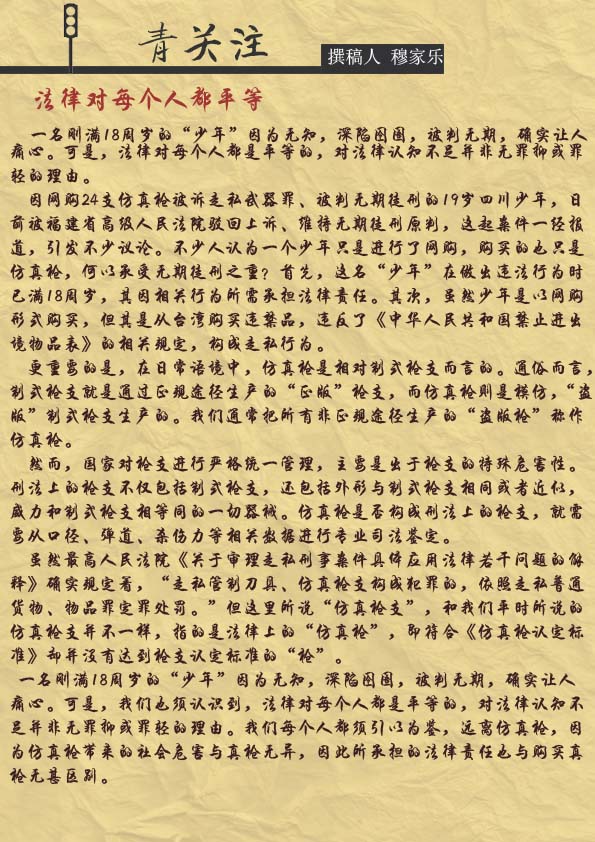 青关注
撰稿人 穆家乐
法律对每个人都平等
一名刚满18周岁的“少年”因为无知，深陷囹圄，被判无期，确实让人
痛心。可是，法律对每个人都是平等的，对法律认知不足并非无罪抑或罪
轻的理由。
因网购24支仿真枪被诉走私武器罪、被判无期徒刑的19岁四川少年，日
前被福建省高级人民法院驳回上诉、维持无期徒刑原判，这起案件一经报
道，引发不少议论。不少人认为一个少年只是进行了网购，购买的也只是
仿真枪，何以承受无期徒刑之重？首先，这名“少年”在做出违法行为时
已满18周岁，其因相关行为所需承担法律责任。其次，虽然少年是以网购
形式购买，但其是从台湾购买违禁品，违反了《中华人民共和国禁止进出
境物品表》的相关规定，构成走私行为。
更重要的是，在日常语境中，仿真枪是相对制式枪支而言的。通俗而言，
制式枪支就是通过正规途径生产的“正版”枪支，而仿真枪则是模仿，“盗
版”制式枪支生产的。我们通常把所有非正规途径生产的“盗版枪”称作
仿真枪。
然而，国家对枪支进行严格统一管理，主要是出于枪支的特殊危害性。
刑法上的枪支不仅包括制式枪支，还包括外形与制式枪支相同或者近似，
威力和制式枪支相等同的一切器械。仿真枪是否构成刑法上的枪支，就需
要从口径、弹道、杀伤力等相关数据进行专业司法鉴定。
虽然最高人民法院《关于审理走私刑事案件具体应用法律若干问题的解
释》确实规定着，“走私管制刀具、仿真枪支构成犯罪的，依照走私普通
货物、物品罪定罪处罚。”但这里所说“仿真枪支”，和我们平时所说的
仿真枪支并不一样，指的是法律上的“仿真枪”，即符合《仿真枪认定标
准》却并没有达到枪支认定标准的“枪”。
一名刚满18周岁的“少年”因为无知，深陷囹圄，被判无期，确实让人
痛心。可是，我们也须认识到，法律对每个人都是平等的，对法律认知不
足并非无罪抑或罪轻的理由。我们每个人都须引以为鉴，远离仿真枪，因
为仿真枪带来的社会危害与真枪无异，因此所承担的法律责任也与购买真
枪无甚区别。